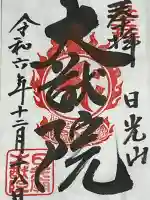 奉拝
日光山
大猷院
令和六年十二月十八日